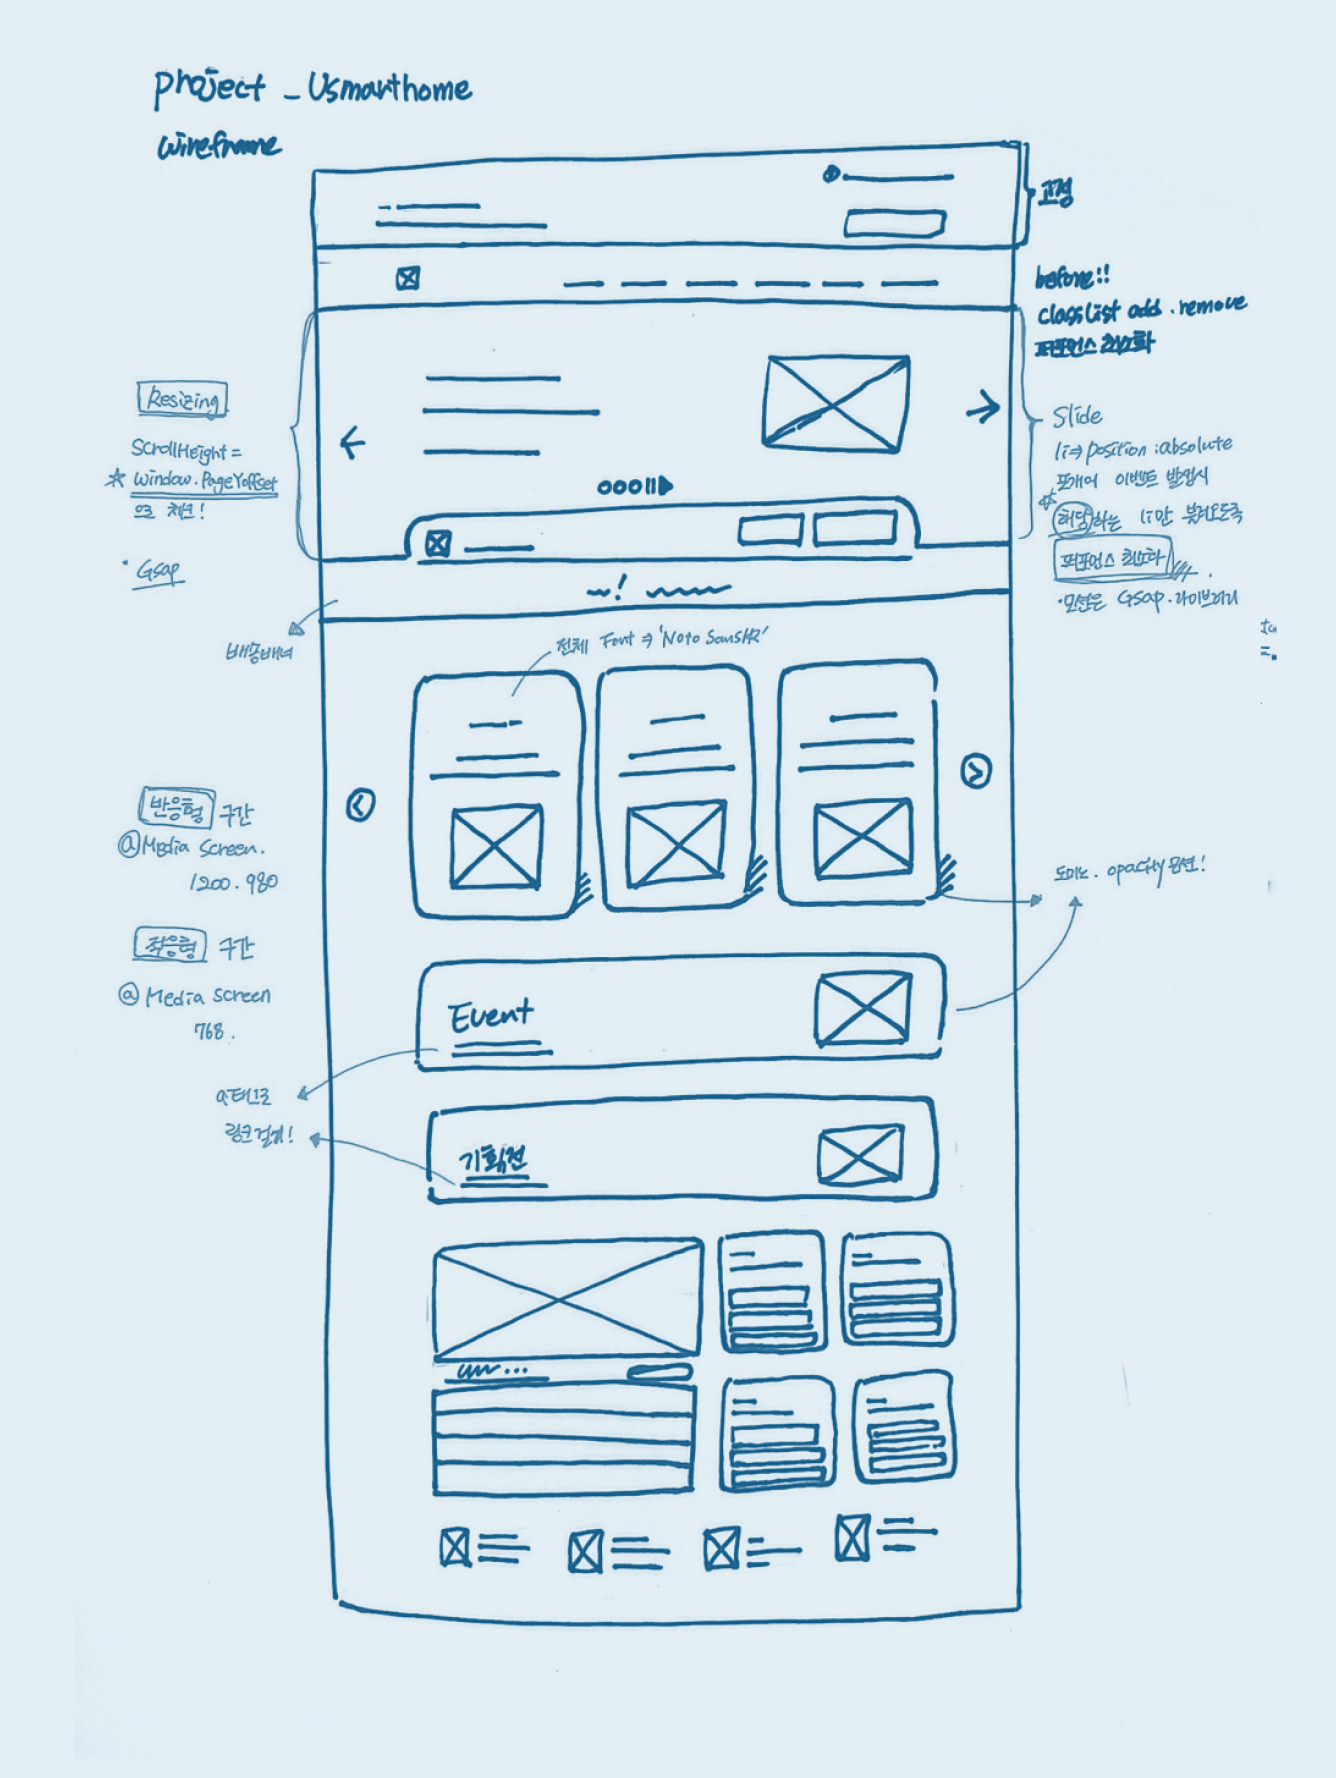 project _ Usmarthome
wireframe
고정
before!!
classList add . remove
퍼포먼스 최소화
Resizing
ScrollHeight =
☆ window.PageYoffset
으로 체크!
· Gsap
Slide
li⇒ position :absolute
포개어 이벤트 발생시
☆ 해당하는 li만 불러오도록
퍼포먼스 최소화
·모션은 Gsap.라이브러리
배송배너
전체 Font ⇒ 'Noto SansKR'
반응형 구간
@Media Screen.
1200 . 980
적응형 구간
@ Media Screen
768 .
도미노 . opacity 모션!
Event
a태그로
링크걸기!
기획전